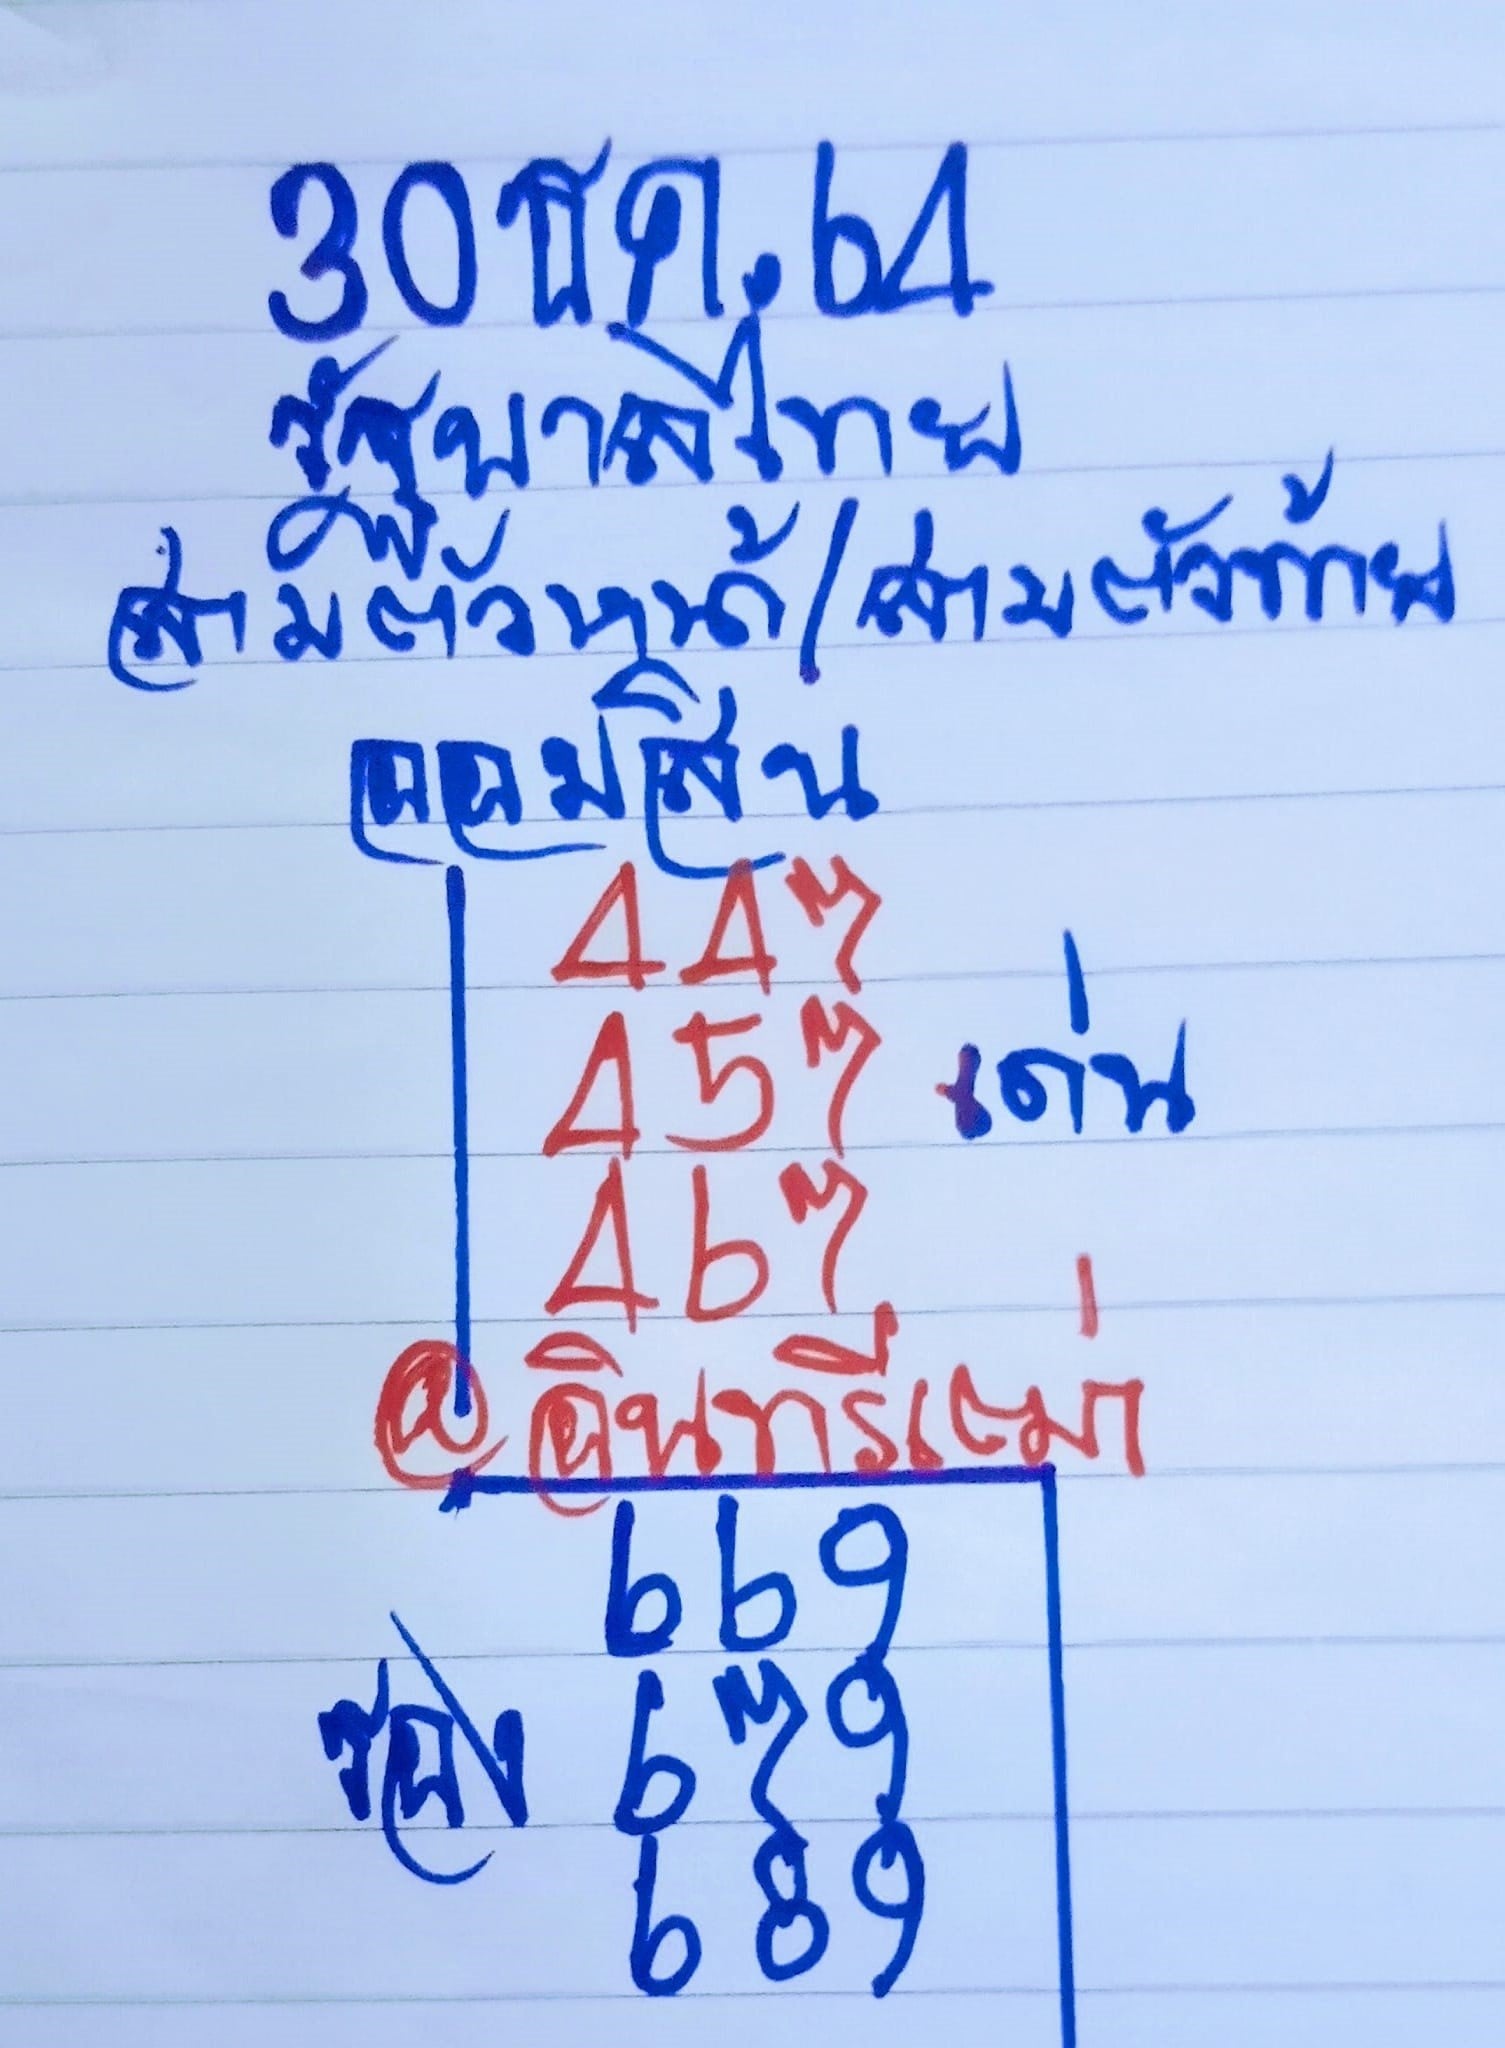 30 ธค.64
รัฐบาลไทย
สามตัวหน้า/สามตัวท้าย
ออมสิน
447
457 เด่น
467
@อินทรีเฒ่า
669
รอง 679
689